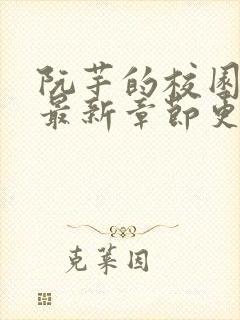 阮芋的校园
最新章节更
克莱因